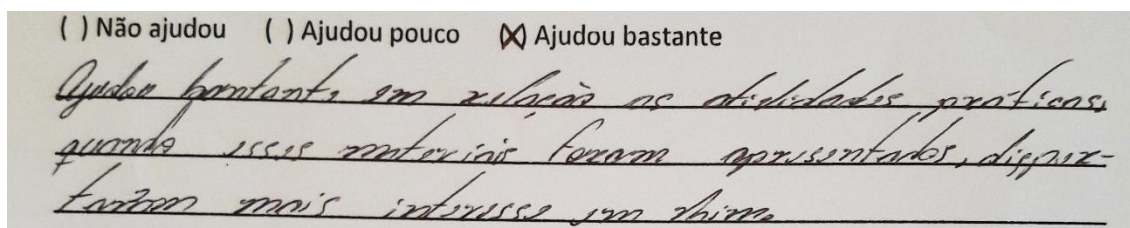 ( ) Não ajudou ( ) Ajudou pouco (X) Ajudou bastante
Ajudou bastante, em relação as atividades práticas,
quando esses materiais foram apresentados, disper-
taram mais interesse em mim.